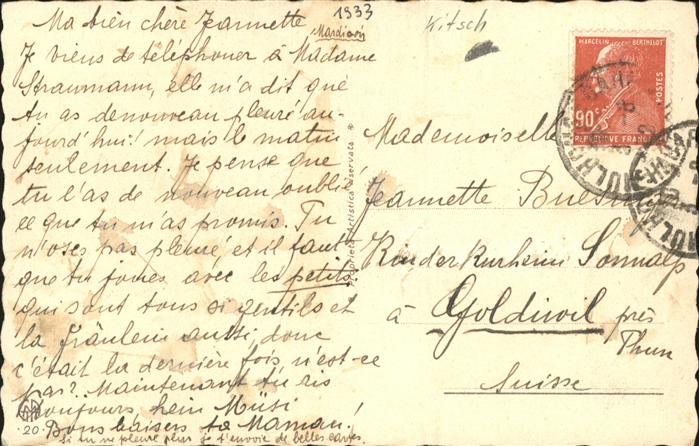 1933
Kitsch
Ma bien chère Jeannette
Mardi
Je viens de téléphoner à Madame
Straumann, elle m'a dit que
tu as de nouveau pleuré au-
jourd'hui! mais le matin
seulement. Je pense que
tu l'as de nouveau oublié
ce que tu m'as promis. Tu
n'oses pas pleuré et il faut
que tu joues avec les petits
qui sont tous si gentils et
la fräulein aussi, donc
c'était la dernière fois n'est-ce
pas? Maintenant tu ris
toujours, hein Müsi
Bons baisers ta Maman!
si tu ne pleure plus je t'envoie de belles cartes.
20
Proprietà Artistica riservata
MARCELIN BERTHELOT
POSTES
90 c
REPUBLIQUE FRANÇAISE
Mademoiselle
Jeannette
Kinderkurheim Sonnalp
à Goldiwil près
Thun
Suisse